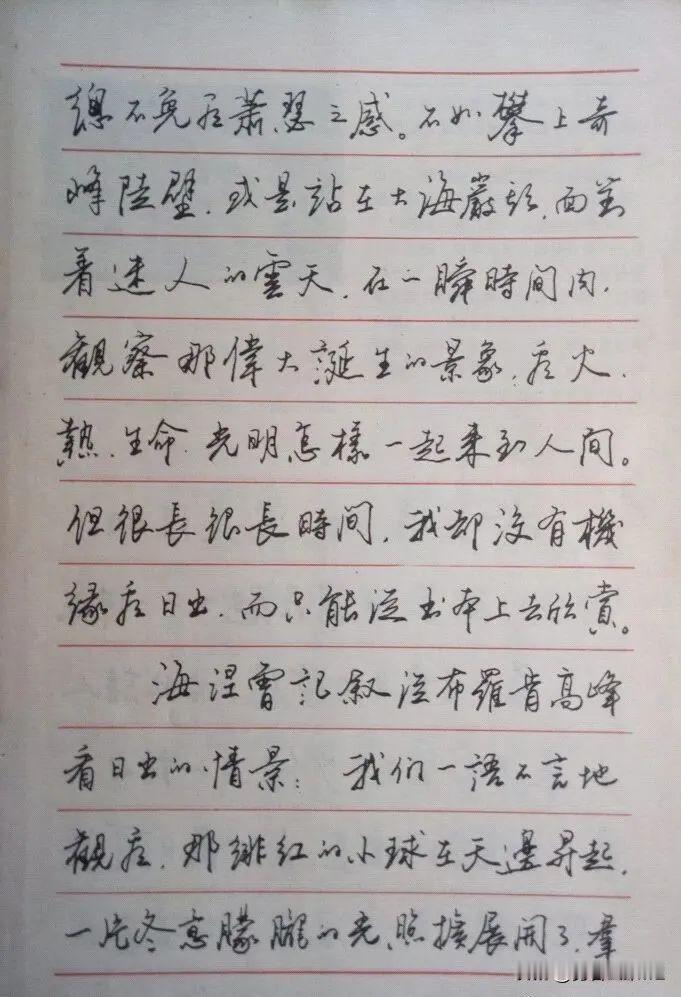 總不免有蕭瑟之感。不如攀上奇
峰陡壁,或是站在大海巖頭,面對
着迷人的雲天,在一瞬時間内,
觀察那偉大誕生的景象,看火、
熱、生命、光明怎樣一起来到人间。
但很長很長時间,我却没有機
緣看日出,而只能從书本上去欣賞。
海涅曾記叙從布羅肯高峰
看日出的情景: 我们一語不言地
觀看,那緋紅的小球在天邊昇起,
一片冬意朦朧的光照擴展開了,羣